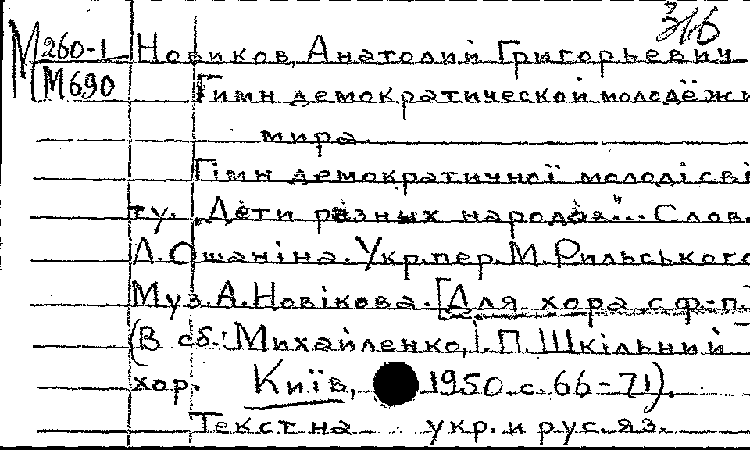 316
М260-1 Новиков, Анатолий Григорьевич
М690 Гимн демократической молодёжи
мира
Гімн демократичної молоді сві
ту. „Дети разных народов"... Слов.
Л. Ошаніна. Укр. пер. М. Рильського
Муз. А. Новікова. [Для хора с ф-п]
(В сб.: Михайленко, І. П. Шкільний
хор. Київ, 1950. с. 66-71).
Текст на укр. и рус. яз.